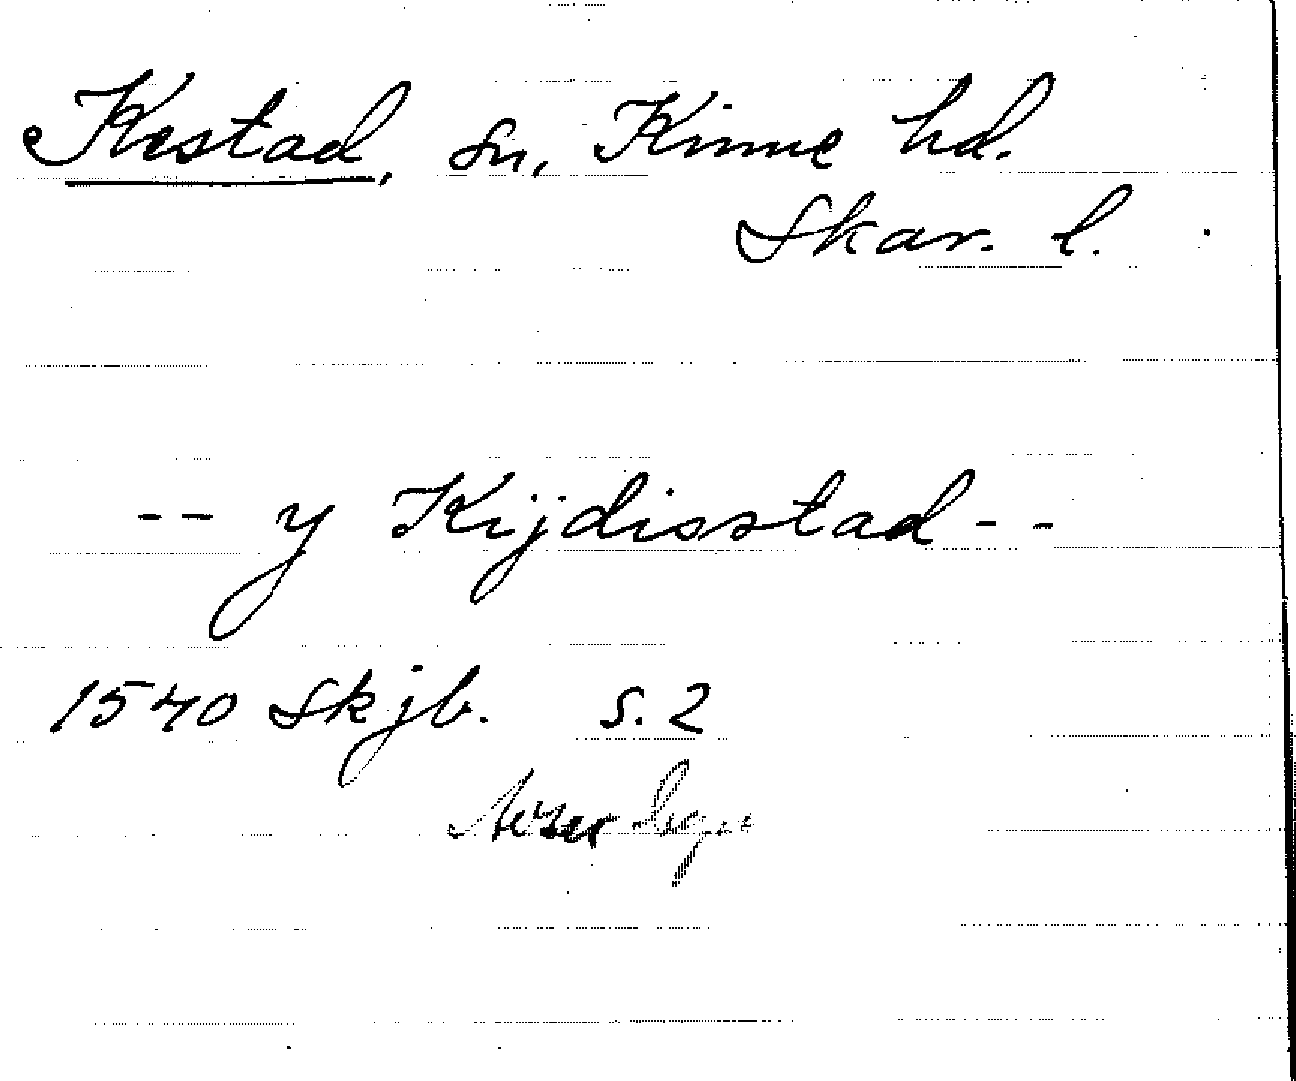 Kestad, sn, Kinne hd.
Skar. l.
-- y Kijdisstad --
1540 Skjb. s. 2